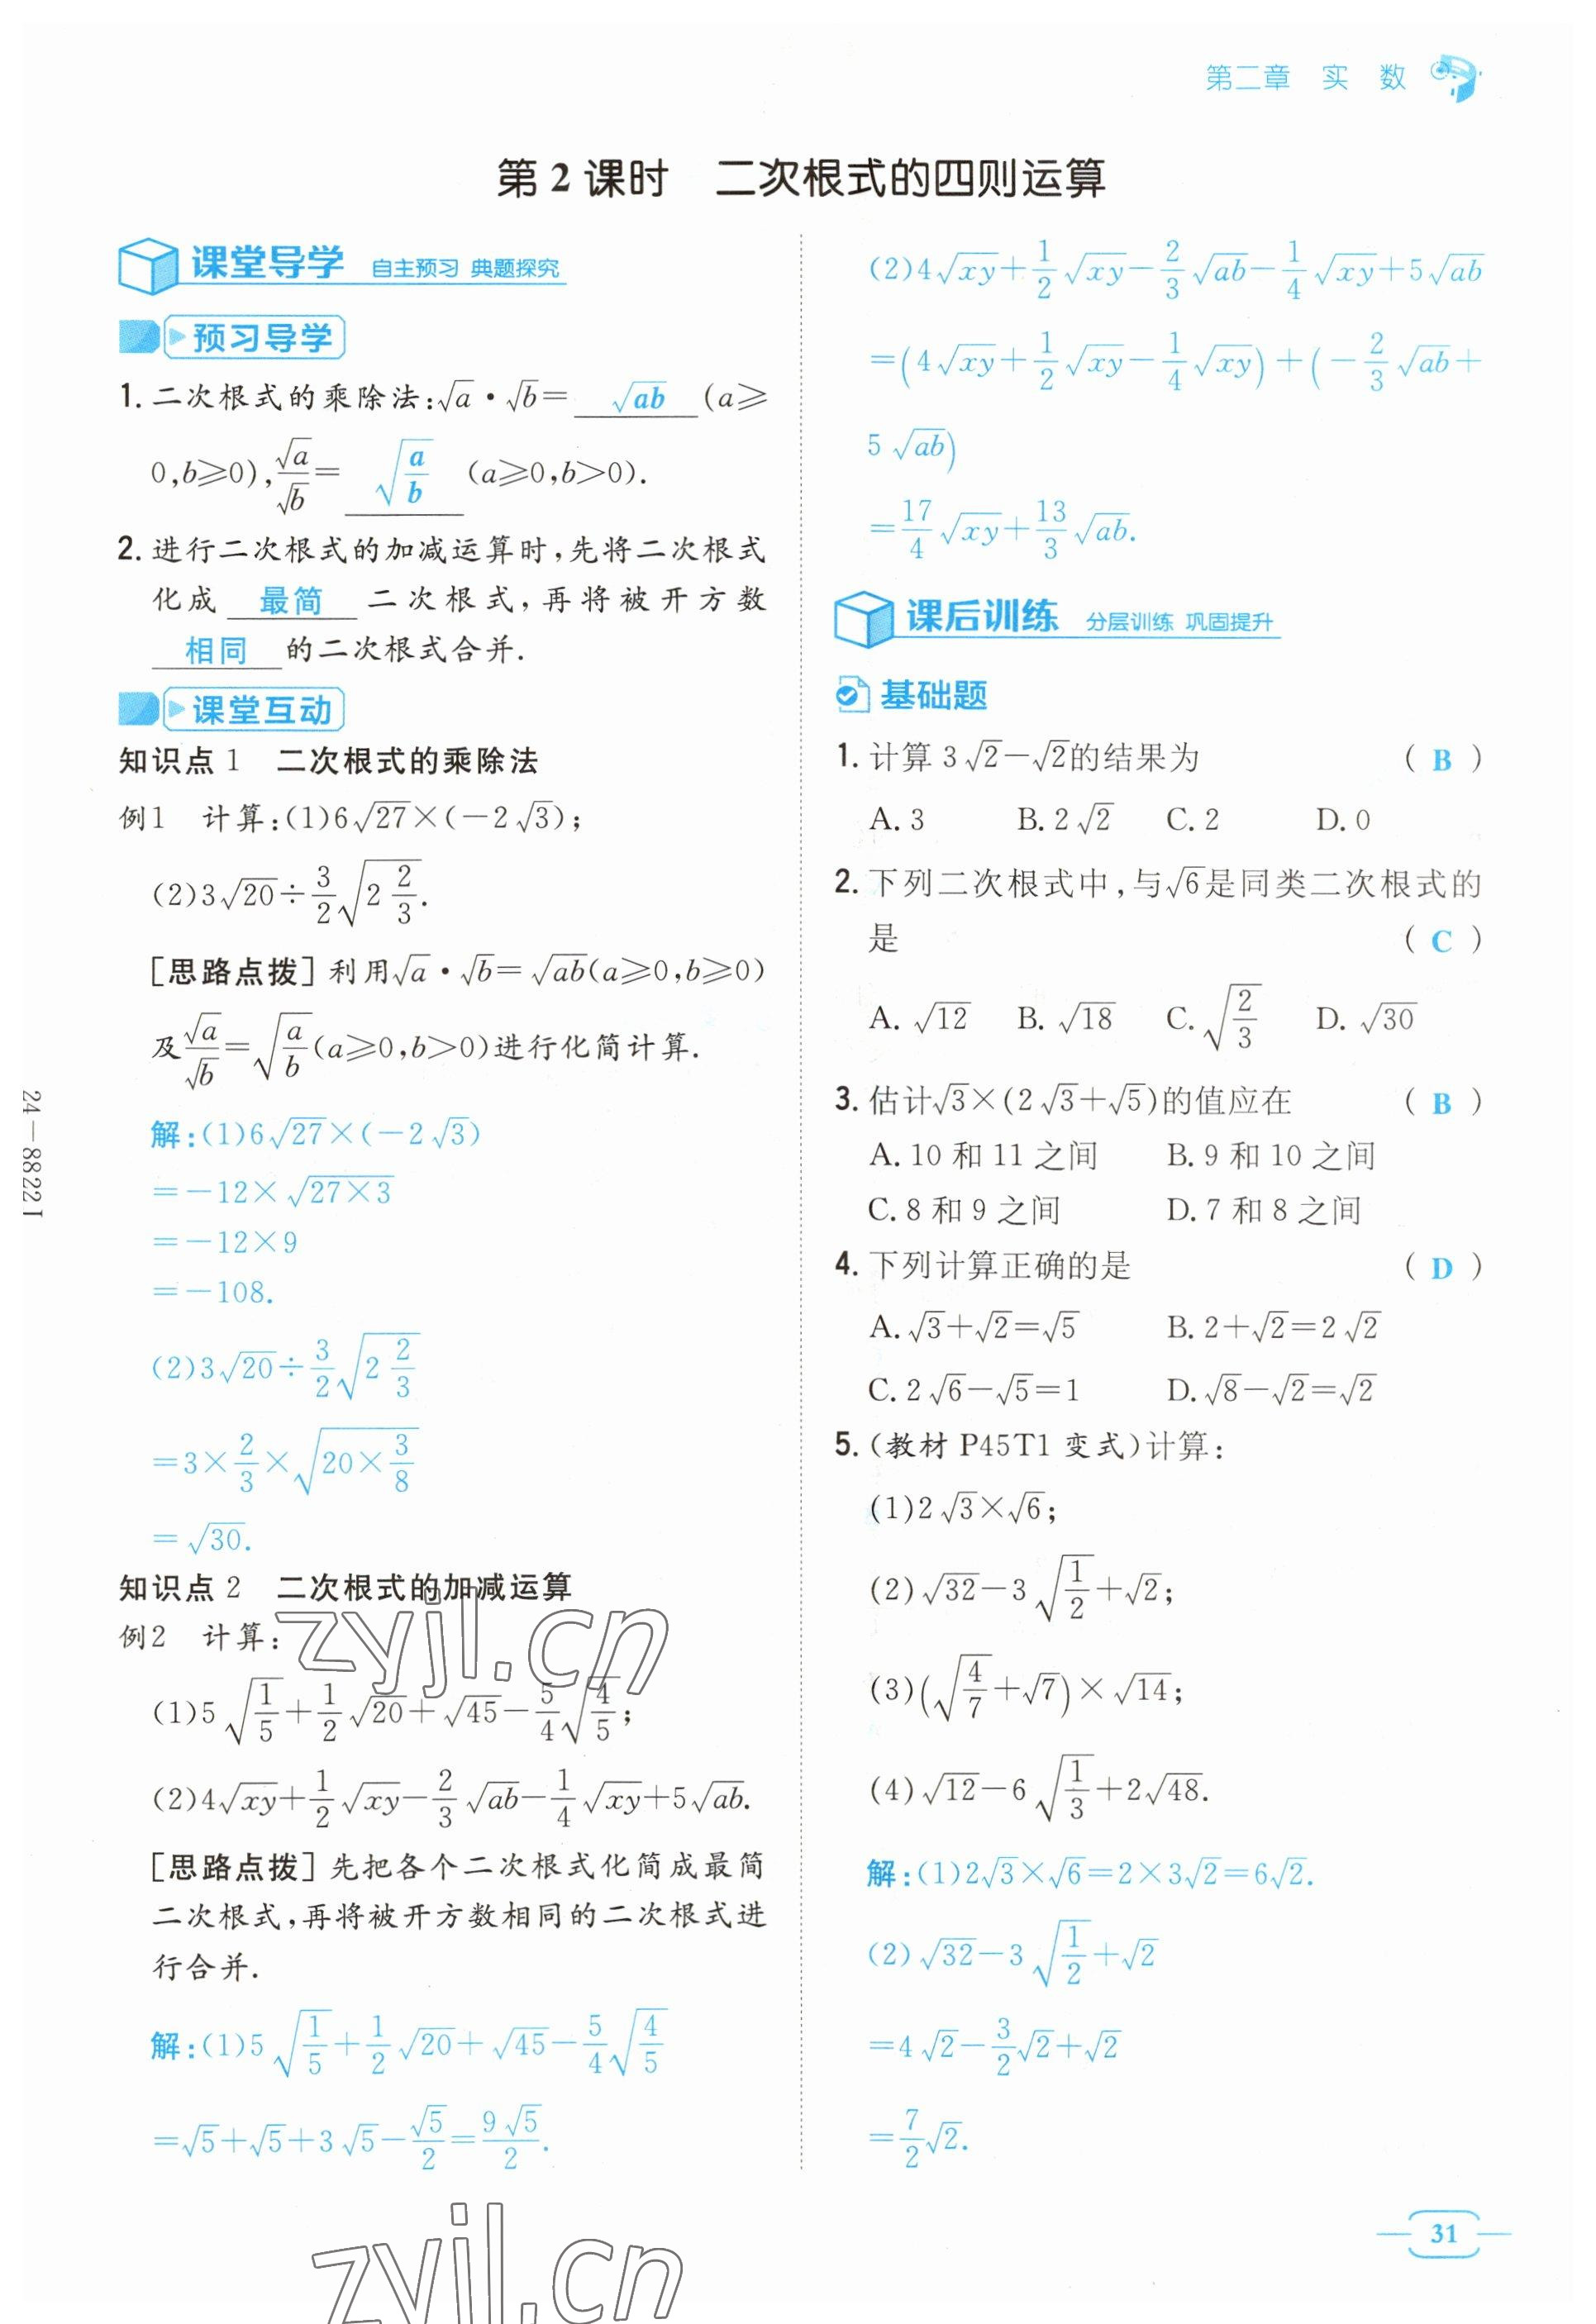 第二章 实 数
第 2 课时 二次根式的四则运算
课堂导学 自主预习 典题探究
预习导学
1. 二次根式的乘除法:√a·√b= √ab (a≥
0,b≥0),√a/√b= √(a/b) (a≥0,b>0).
2. 进行二次根式的加减运算时,先将二次根式
化成 最简 二次根式,再将被开方数
相同 的二次根式合并.
课堂互动
知识点 1 二次根式的乘除法
例1 计算:(1)6√27×(-2√3);
(2)3√20÷3/2√(2 2/3).
[思路点拨]利用√a·√b=√ab(a≥0,b≥0)
及√a/√b=√(a/b)(a≥0,b>0)进行化简计算.
解:(1)6√27×(-2√3)
=-12×√(27×3)
=-12×9
=-108.
(2)3√20÷3/2√(2 2/3)
=3×2/3×√(20×3/8)
=√30.
知识点 2 二次根式的加减运算
例2 计算:
(1)5√(1/5)+1/2√20+√45-5/4√(4/5);
(2)4√xy+1/2√xy-2/3√ab-1/4√xy+5√ab.
[思路点拨]先把各个二次根式化简成最简
二次根式,再将被开方数相同的二次根式进
行合并.
解:(1)5√(1/5)+1/2√20+√45-5/4√(4/5)
=√5+√5+3√5-√5/2=9√5/2.
(2)4√xy+1/2√xy-2/3√ab-1/4√xy+5√ab
=(4√xy+1/2√xy-1/4√xy)+(-2/3√ab+
5√ab)
=17/4√xy+13/3√ab.
课后训练 分层训练 巩固提升
基础题
1. 计算 3√2-√2的结果为 ( B )
A. 3 B. 2√2 C. 2 D. 0
2. 下列二次根式中,与√6是同类二次根式的
是 ( C )
A. √12 B. √18 C. √(2/3) D. √30
3. 估计√3×(2√3+√5)的值应在 ( B )
A. 10 和 11 之间 B. 9 和 10 之间
C. 8 和 9 之间 D. 7 和 8 之间
4. 下列计算正确的是 ( D )
A. √3+√2=√5 B. 2+√2=2√2
C. 2√6-√5=1 D. √8-√2=√2
5. (教材 P45T1 变式)计算:
(1)2√3×√6;
(2)√32-3√(1/2)+√2;
(3)(√(4/7)+√7)×√14;
(4)√12-6√(1/3)+2√48.
解:(1)2√3×√6=2×3√2=6√2.
(2)√32-3√(1/2)+√2
=4√2-3/2√2+√2
=7/2√2.
24-8822I
zyjl.cn
zyjl.cn
31